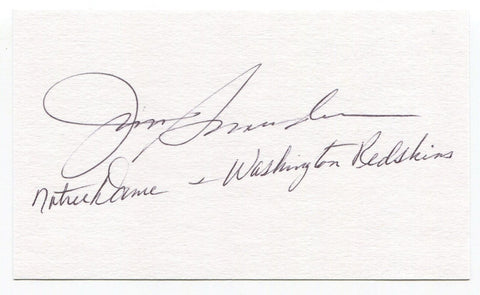 Jim Snowden
Notre Dame - Washington Redskins